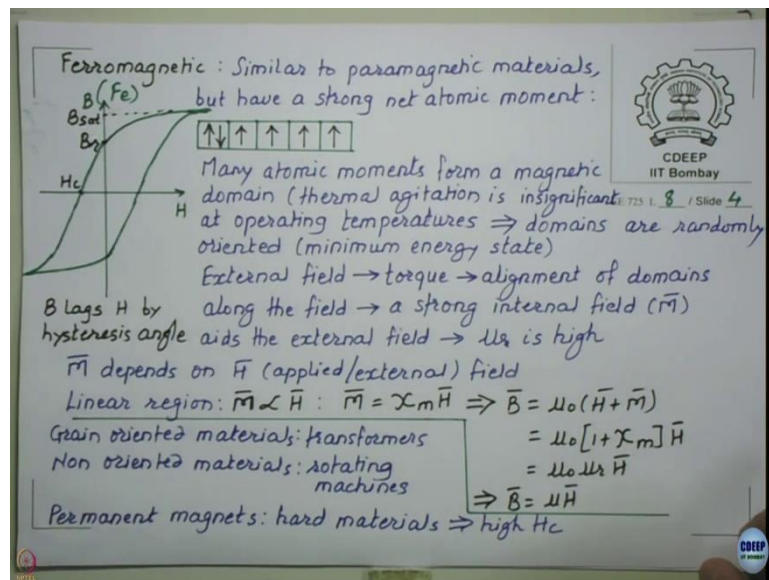 Ferromagnetic : Similar to paramagnetic materials,
but have a strong net atomic moment :
B (Fe)
Bsat
Br
Hc
H
↑↓ ↑ ↑ ↑ ↑
CDEEP
IIT Bombay
E 725 L 8 / Slide 4
Many atomic moments form a magnetic
domain (thermal agitation is insignificant
at operating temperatures ⇒ domains are randomly
oriented (minimum energy state)
External field → torque → alignment of domains
along the field → a strong internal field (M̄)
aids the external field → μr is high
B lags H by
hysteresis angle
M̄ depends on H̄ (applied/external) field
Linear region: M̄ ∝ H̄ : M̄ = χm H̄ ⇒ B̄ = μ0 (H̄ + M̄)
= μ0 [1 + χm] H̄
= μ0 μr H̄
⇒ B̄ = μH̄
Grain oriented materials: transformers
Non oriented materials: rotating
machines
Permanent magnets: hard materials ⇒ high Hc
CDEEP
IIT BOMBAY